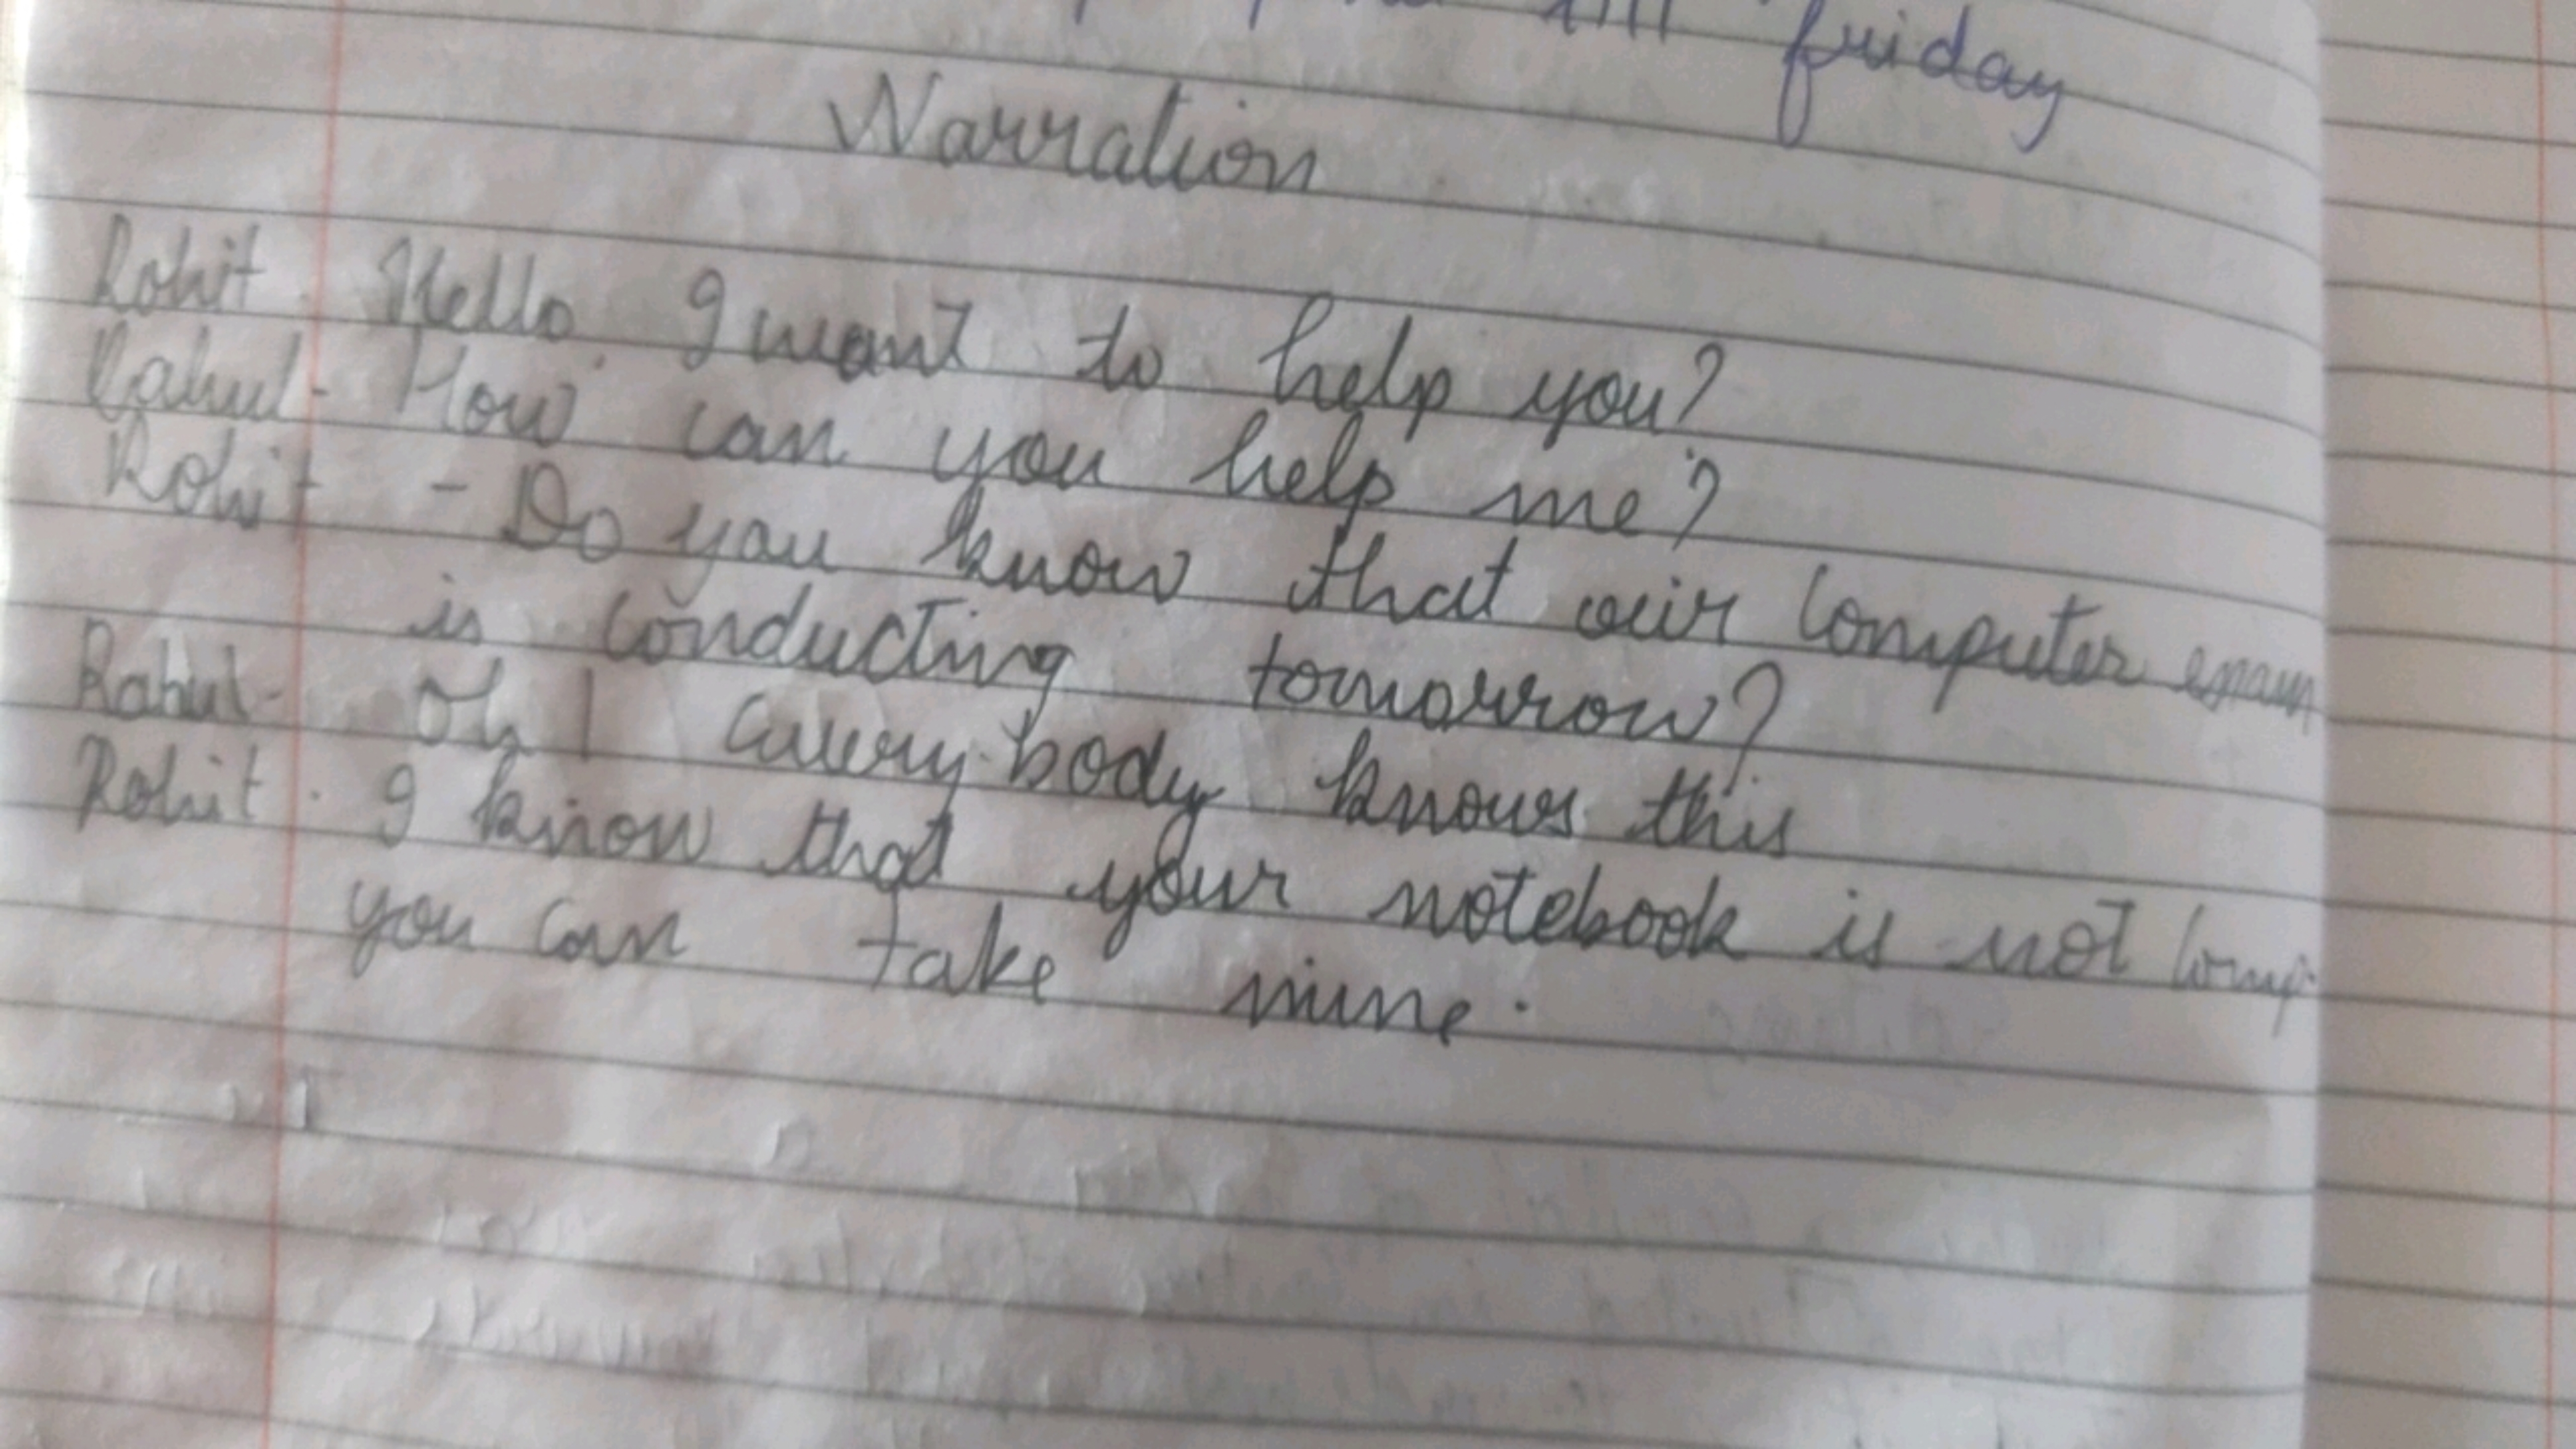 till friday
Narration
Rohit. Hello. I want to help you?
Rahul- How can you help me?
Rohit - Do you know that our Computer exam
is conducting tomorrow?
Rahul- Oh! Every body knows this
Rohit. I know that your notebook is not comp.
you can take mine.